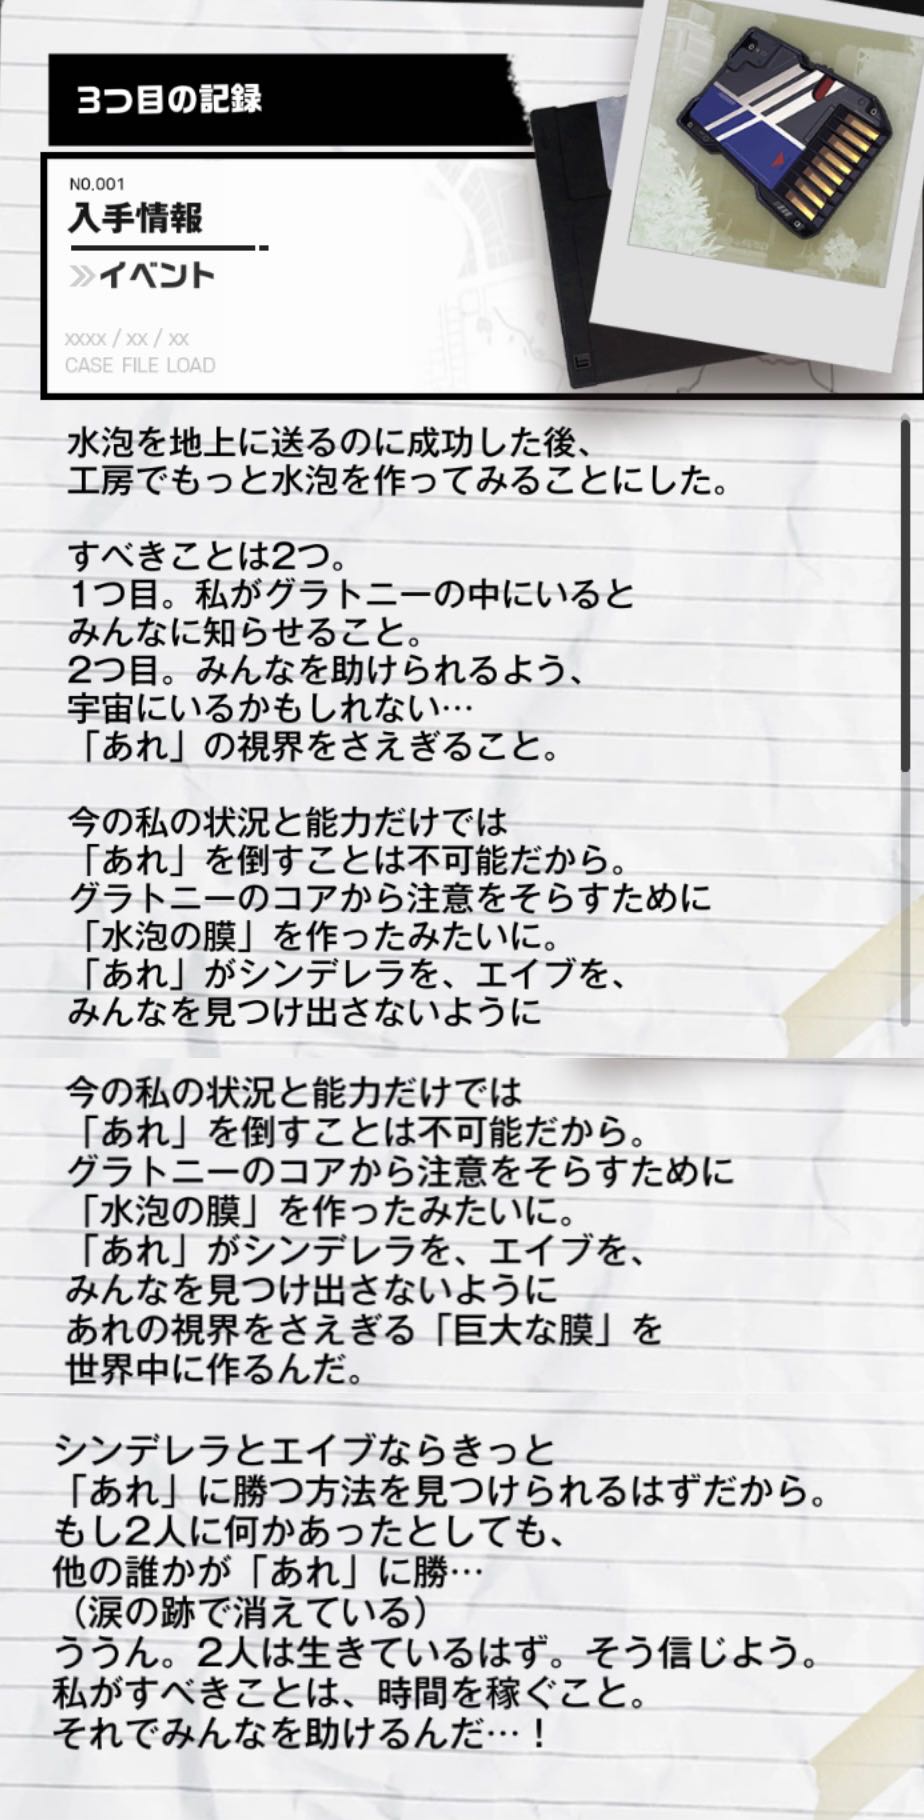 3つ目の記録
NO.001
入手情報
イベント
xxxx / xx / xx
CASE FILE LOAD
水泡を地上に送るのに成功した後、
工房でもっと水泡を作ってみることにした。
すべきことは2つ。
1つ目。私がグラトニーの中にいると
みんなに知らせること。
2つ目。みんなを助けられるよう、
宇宙にいるかもしれない…
「あれ」の視界をさえぎること。
今の私の状況と能力だけでは
「あれ」を倒すことは不可能だから。
グラトニーのコアから注意をそらすために
「水泡の膜」を作ったみたいに。
「あれ」がシンデレラを、エイブを、
みんなを見つけ出さないように
今の私の状況と能力だけでは
「あれ」を倒すことは不可能だから。
グラトニーのコアから注意をそらすために
「水泡の膜」を作ったみたいに。
「あれ」がシンデレラを、エイブを、
みんなを見つけ出さないように
あれの視界をさえぎる「巨大な膜」を
世界中に作るんだ。
シンデレラとエイブならきっと
「あれ」に勝つ方法を見つけられるはずだから。
もし2人に何かあったとしても、
他の誰かが「あれ」に勝…
（涙の跡で消えている）
ううん。2人は生きているはず。そう信じよう。
私がすべきことは、時間を稼ぐこと。
それでみんなを助けるんだ…！